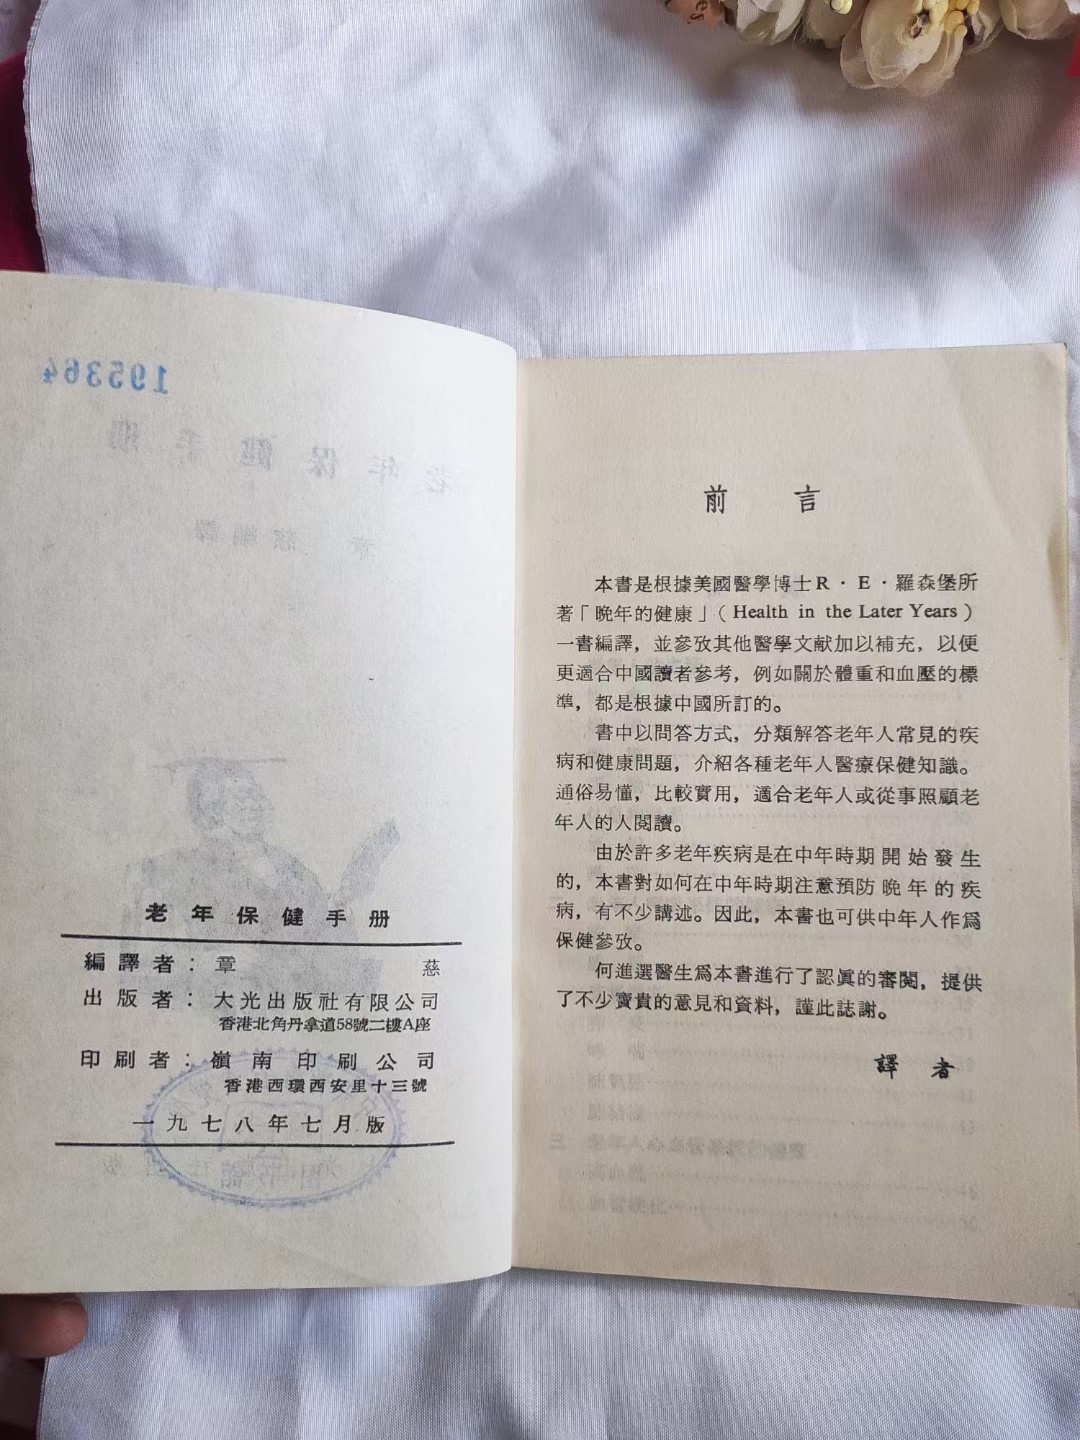 195364
老年保健手册
編譯者：章慈
出版者：大光出版社有限公司
香港北角丹拿道58號二樓A座
印刷者：嶺南印刷公司
香港西環西安里十三號
一九七八年七月版
前言
本書是根據美國醫學博士R·E·羅森堡所
著「晚年的健康」（Health in the Later Years）
一書編譯，並參攷其他醫學文献加以補充，以便
更適合中國讀者參考，例如關於體重和血壓的標
準，都是根據中國所訂的。
書中以問答方式，分類解答老年人常見的疾
病和健康問題，介紹各種老年人醫療保健知識。
通俗易懂，比較實用，適合老年人或從事照顧老
年人的人閱讀。
由於許多老年疾病是在中年時期開始發生
的，本書對如何在中年時期注意預防晚年的疾
病，有不少講述。因此，本書也可供中年人作爲
保健參攷。
何進選醫生爲本書進行了認眞的審閱，提供
了不少寶貴的意見和資料，謹此誌謝。
譯者